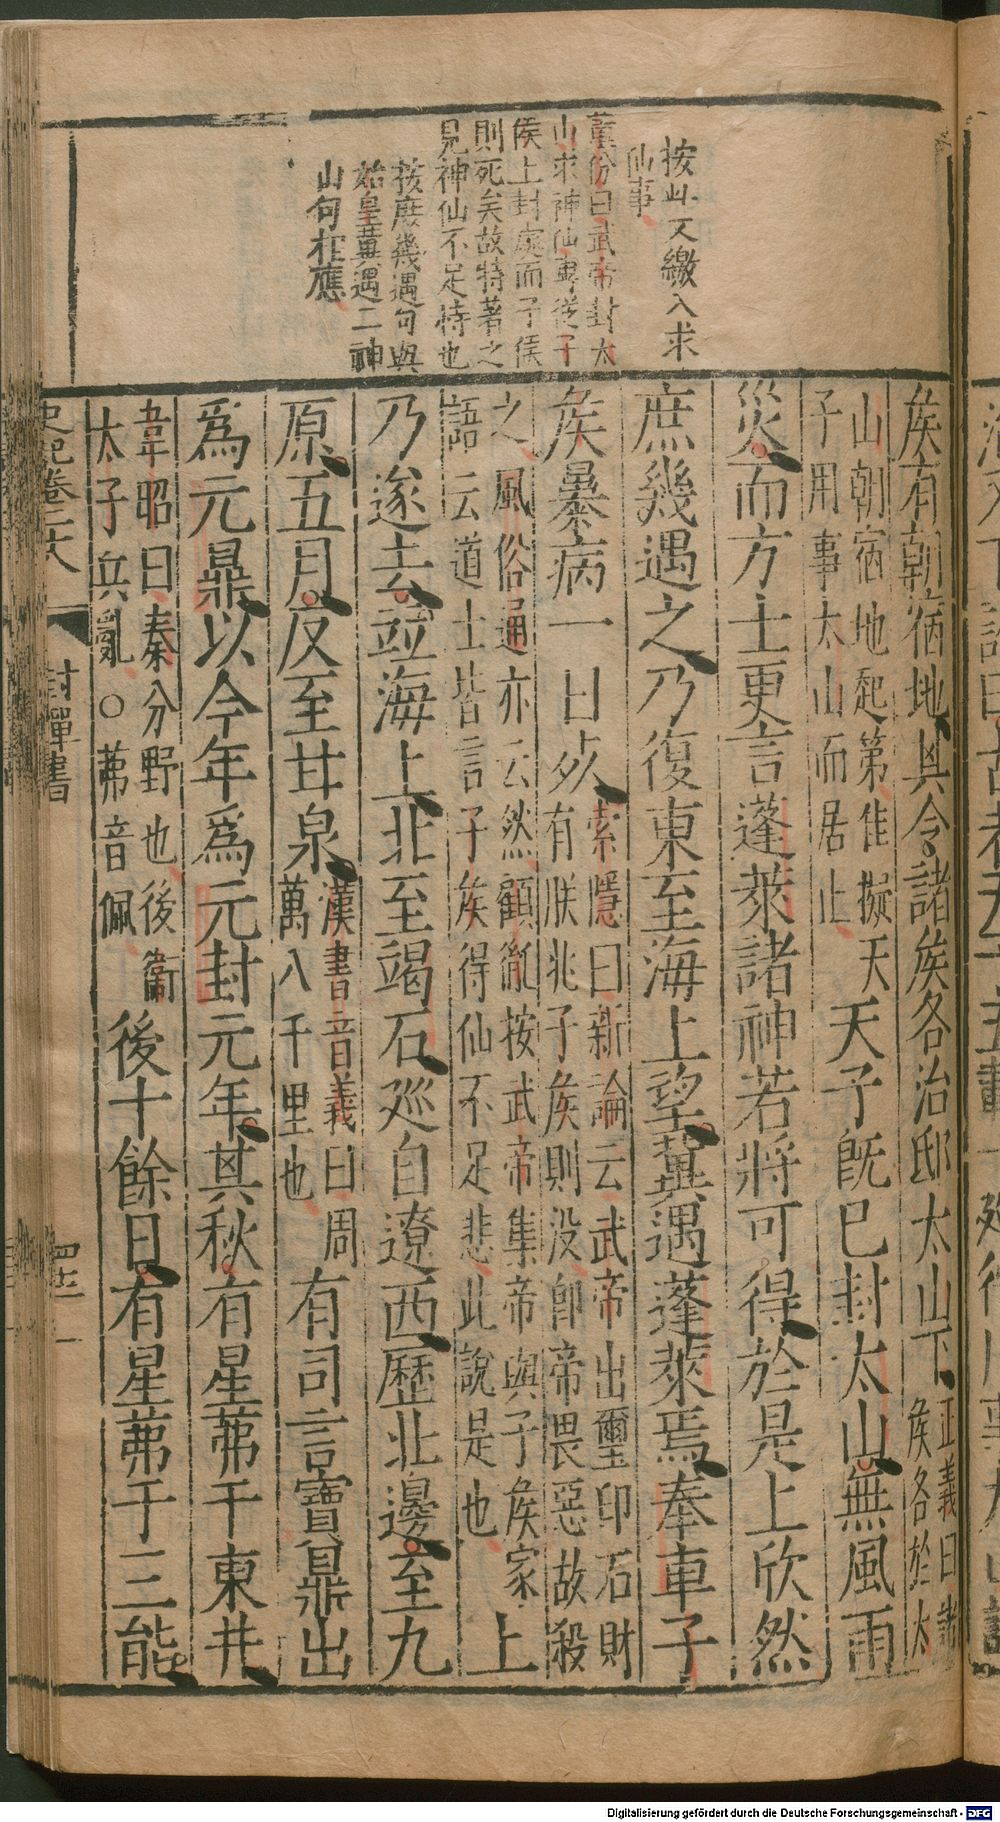 按此又繳入求
仙事
董份曰武帝封太
山求神仙專從子
侯上封處而子侯
則死矣故特著之
見神仙不足恃也
按庶幾遇句與
始皇冀遇二神
山句相應
矦有朝宿地其令諸矦各治邸太山下正義曰諸矦各於太
山朝宿地起第準擬天子用事太山而居止天子旣巳封太山無風雨
災而方士更言蓬萊諸神若將可得於是上欣然
庶幾遇之乃復東至海上望冀遇蓬萊焉奉車子
矦暴病一日歿索隱曰新論云武帝出璽印石財有朕兆子矦則没卽帝畏惡故殺
之風俗通亦云然顧胤按武帝集帝與子矦家語云道士皆言子矦得仙不足悲此說是也上
乃遂去並海上北至碣石廵自遼西歷北邊至九
原五月反至甘泉漢書音義曰周萬八千里也有司言寶鼎出
爲元鼎以今年爲元封元年其秋有星茀于東井
韋昭曰秦分野也後衞太子兵亂○茀音佩後十餘日有星茀于三能
史記卷二十八
封禪書
四十二
Digitalisierung gefördert durch die Deutsche Forschungsgemeinschaft - DFG